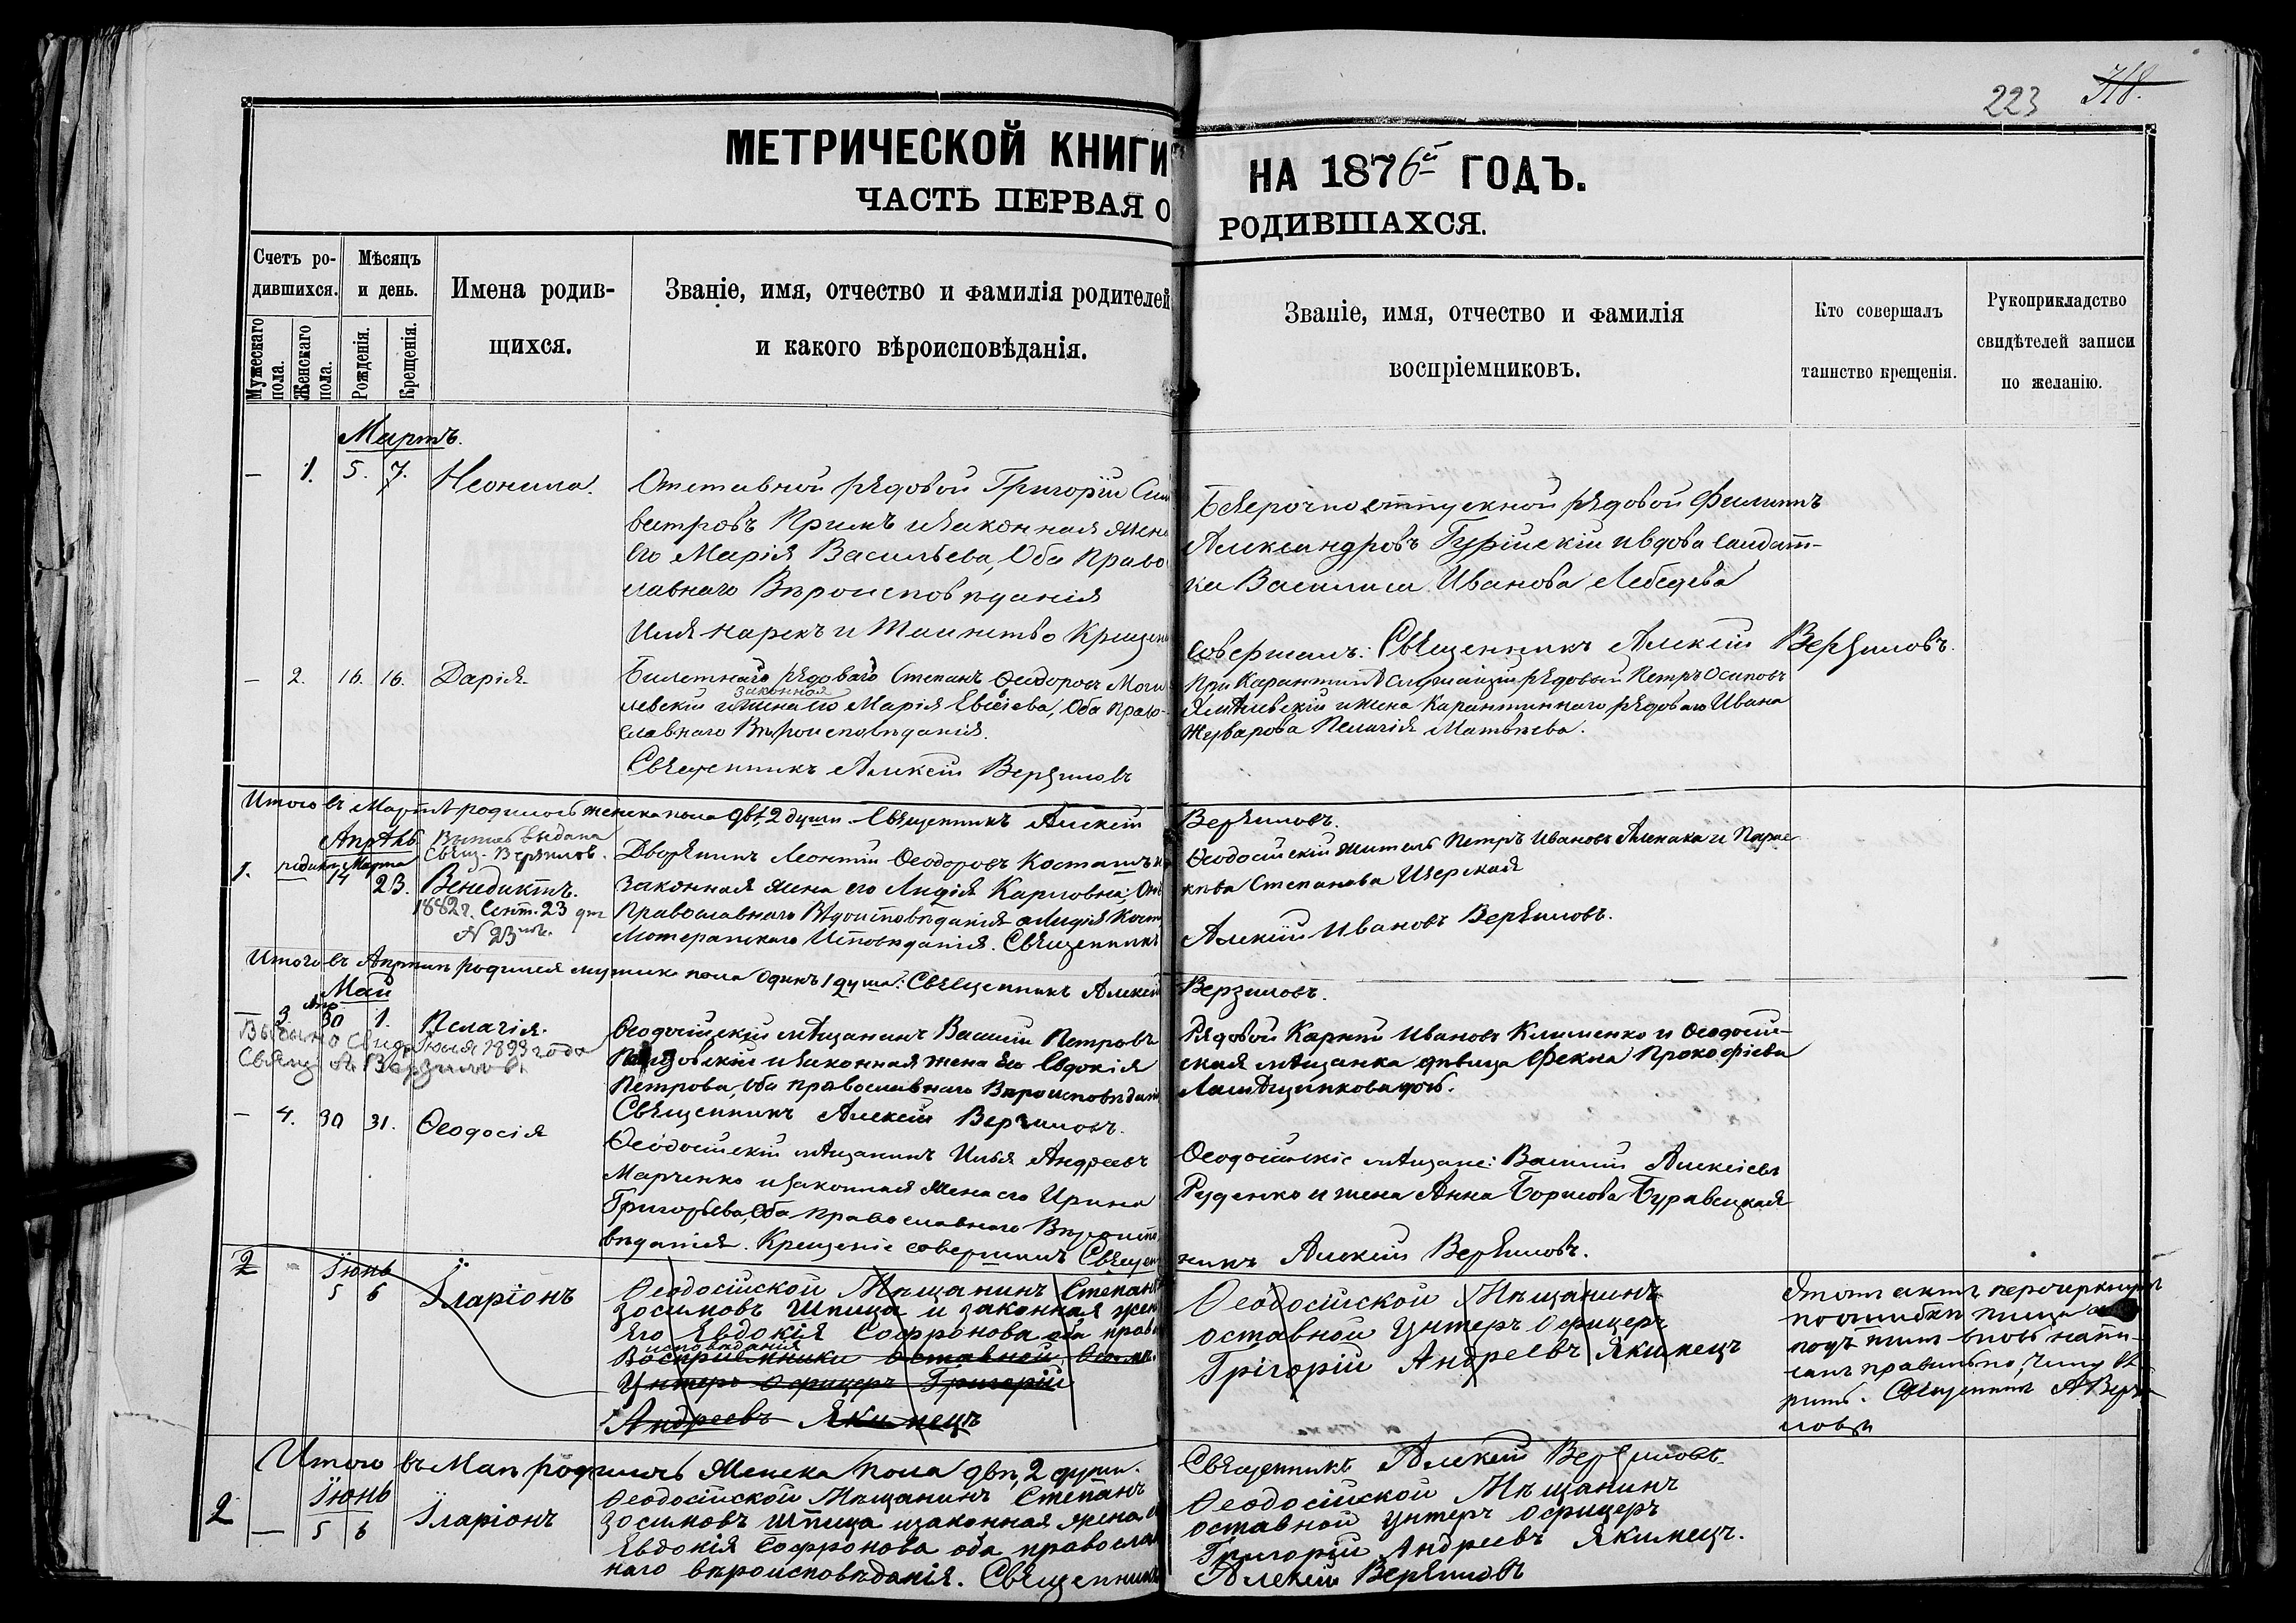 223 318.
МЕТРИЧЕСКОЙ КНИГИ НА 1876й ГОДЪ.
ЧАСТЬ ПЕРВАЯ О РОДИВШАХСЯ.
Счетъ ро-
дившихся.
Мужескаго
пола.
Женскаго
пола.
Мѣсяцъ
и день.
Рожденія.
Крещенія.
Имена родив-
щихся.
Званіе, имя, отчество и фамилія родителей
и какого вѣроисповѣданія.
Званіе, имя, отчество и фамилія
воспріемниковъ.
Кто совершалъ
таинство крещенія.
Рукоприкладство
свидѣтелей записи
по желанію.
Мартъ.
— 1. 5. 7. Неонила.
Отставной рядовой Григорій Сил
вестровъ Примъ и законная жена
его Марія Васильева, Оба Право
славнаго Вѣроисповѣданія
Имя нарекъ и Таинство Крещен
Безсрочноотпускной рядовой Филиппъ
Александровъ Гурійскій и вдова салдат-
ка Василиса Иванова Лебедева
совершалъ: Священникъ Алексій Верзиловъ.
— 2. 16. 16. Дарія.
Билетнаго рядоваго Степанъ Ѳеодоровъ Моги
левскій и законная жена его Марія Евсіева, Оба Право-
славнаго Вѣроисповѣданія.
Священникъ Алексій Верзиловъ
При Карантинѣ служащій рядовый Петръ Осиповъ
и жена Карантиннаго рядоваго Ивана
Жерварова Пелагія Матвѣева.
Итого въ Мартѣ родилось женска пола двѣ, 2 души. Священникъ Алексій Верзиловъ.
Апрѣль
Выпись выдана
Свящ. Верзилов.
1. родился Марта 14 23. Венедиктъ.
1882 г. Сент. 23 дня
N 23
Дворянинъ Леонтій Ѳеодоровъ Косташъ и
законная жена его Лидія Карловна; Онъ
Православнаго Вѣроисповѣданія а Лидія
Лютеранскаго Исповѣданія. Священникъ
Ѳеодосійскій житель Петръ Ивановъ Аленака и Парас
кева Степанова Шерская
Алексій Ивановъ Верзиловъ.
Итого въ Апрѣлѣ родился мужска пола Одинъ 1 душа: Священникъ Алексій Верзиловъ.
Май
Апр
— 3. 30 1. Пелагія.
Выдано 1893 года
Свящ. А. Верзилов.
Ѳеодосійскій мѣщанинъ Василій Петровъ
и законная жена его Евдокія
Петрова, Оба православнаго Вѣроисповѣдані
Священникъ Алексій Верзиловъ.
Рядовой Карпій Ивановъ Клименко и Ѳеодосій-
ская мѣщанка дѣвица Фекла Прокофіева
— 4. 30 31. Ѳеодосія
Ѳеодосійскій мѣщанинъ Илья Андреевъ
Марченко и законная жена его Ирина
Григорьева, Оба православнаго Вѣроиспо
вѣданія. Крещеніе совершилъ Священ
Ѳеодосійскіе мѣщане: Василій Алексіевъ
Руденко и жена Анна Борисова Буравецкая
никъ Алексій Верзиловъ.
2 — Їюнь
5 6 Їларіонъ
Ѳеодосійской Мѣщанинъ Степанъ
Зосимовъ Шпица и законная жена
Его Евдокія Софронова оба право
исповѣданія
Воспріемники Оставной
Унтеръ Офицеръ Григорій
Андреевъ Якимецъ
Ѳеодосійской Мѣщанинъ
оставной Унтеръ Офицеръ
Грігорій Андреевъ Якимецъ
Этотъ актъ перечеркнутъ
по ошибкѣ писца а
подъ нимъ вновь напи-
санъ правильно, чему вѣ
рить. Священникъ А Верзи
ловъ
Итого въ Маѣ родилось женска пола двѣ, 2 души. Священникъ Алексій Верзиловъ.
2 — Їюнь
5 6 Їларіонъ
Ѳеодосійской Мѣщанинъ Степанъ
Зосимовъ Шпица изаконная жена е
Евдокія Софронова оба православ
наго вѣроисповѣданія. Священникъ
Ѳеодосійской Мѣщанинъ
оставной Унтеръ Офицеръ
Григорій Андреевъ Якимецъ.
Алексій Верзиловъ